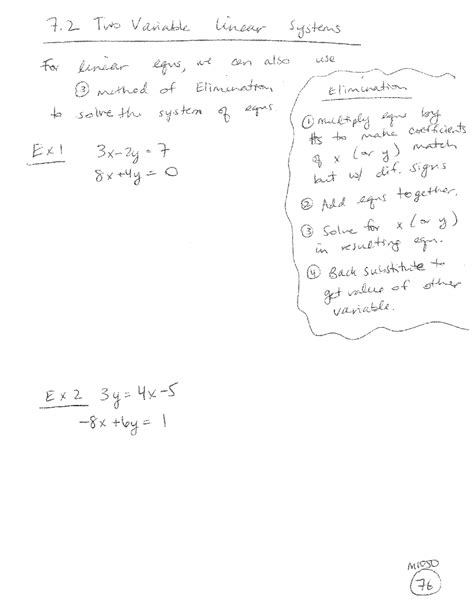 7.2 Two Variable Linear Systems
For linear eqns, we can also use
③ method of Elimination
to solve the system of eqns.
Elimination
① multiply eqns by
#s to make coefficients
of x (or y) match
but w/ dif. signs
② Add eqns together.
③ Solve for x (or y)
in resulting eqn.
④ Back substitute to
get value of other
variable.
Ex 1 3x-2y=7
8x+4y=0
Ex 2 3y=4x-5
-8x+6y=1
M1050
76